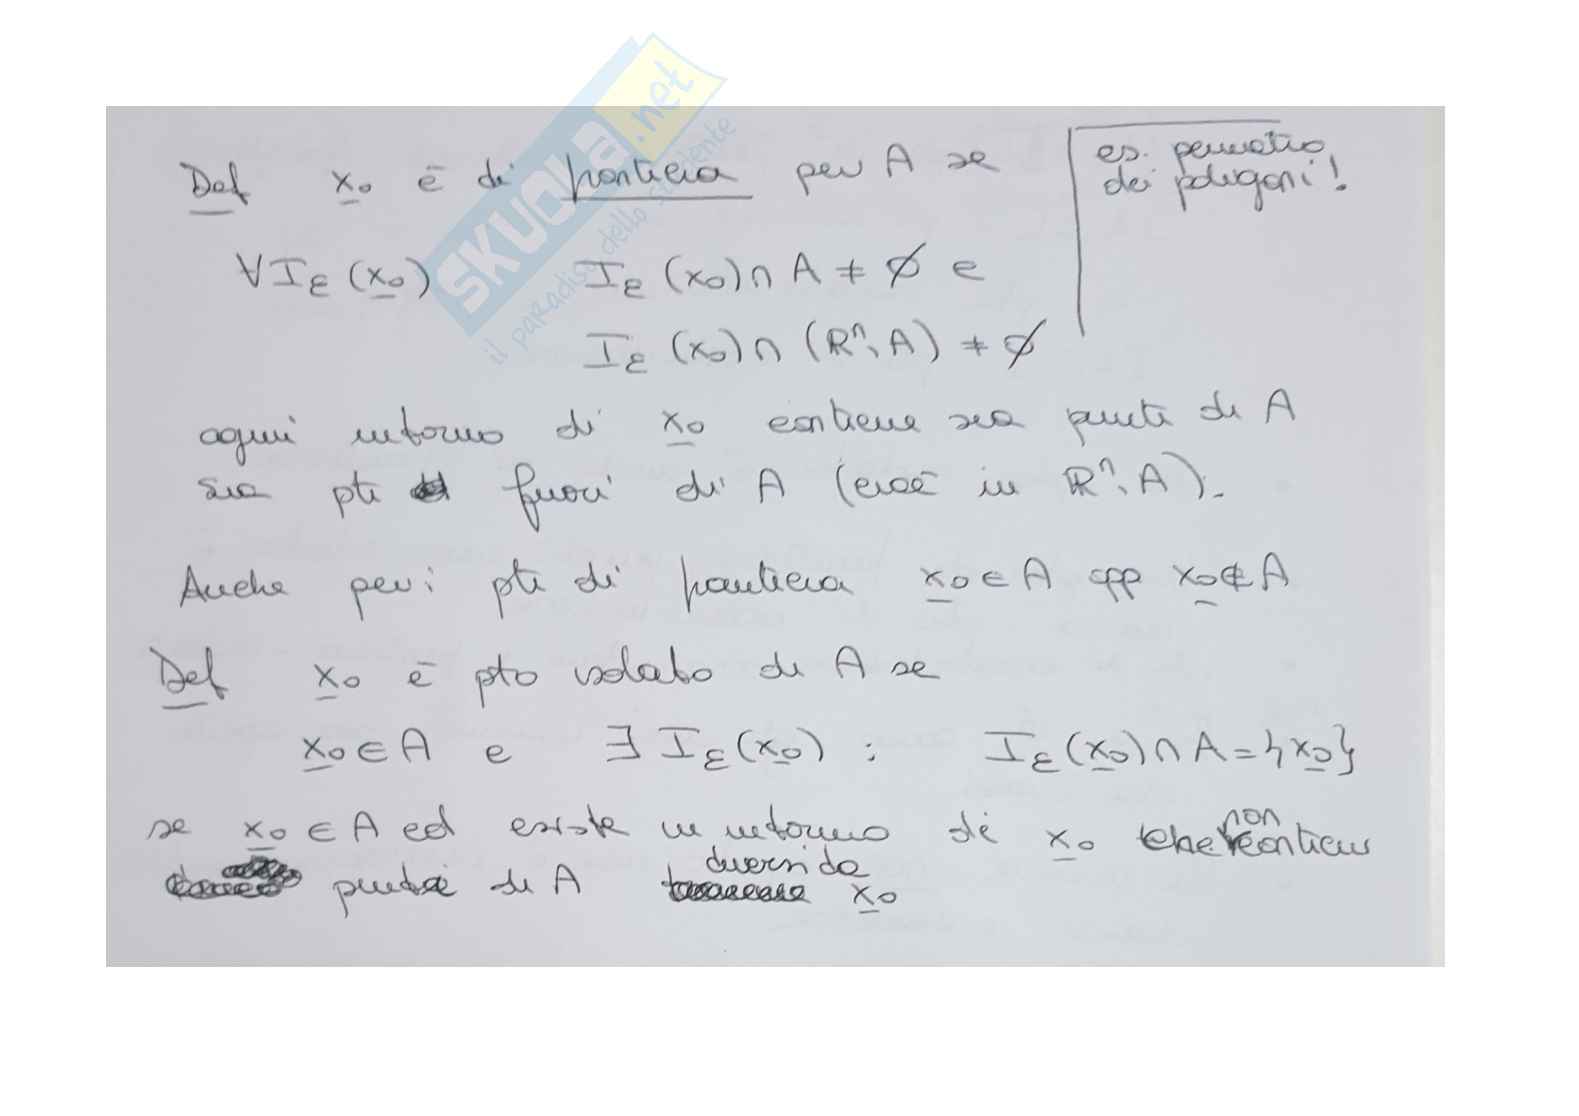 Def x₀ è di frontiera per A se
es. perimetro
dei poligoni!
∀ I_ε (x₀) I_ε (x₀) ∩ A ≠ ∅ e
I_ε (x₀) ∩ (ℝⁿ \ A) ≠ ∅
ogni intorno di x₀ contiene sia punti di A
sia pti fuori di A (cioè in ℝⁿ \ A).
Anche per i pti di frontiera x₀ ∈ A opp x₀ ∉ A
Def x₀ è pto isolato di A se
x₀ ∈ A e ∃ I_ε (x₀) : I_ε (x₀) ∩ A = {x₀}
se x₀ ∈ A ed esiste un intorno di x₀ che non contiene
punti di A diversi da x₀
SKUOLA.net
il paradiso dello studente